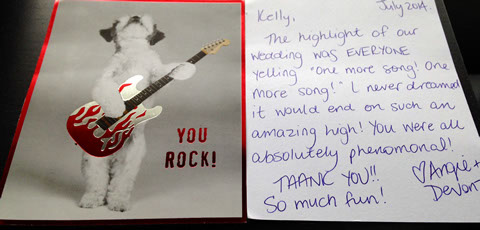 YOU
ROCK!
July 2014.
Kelly,
The highlight of our
wedding was EVERYONE
yelling "One more song! One
more song!" I never dreamed
it would end on such an
amazing high! You were all
absolutely phenomonal!
THANK YOU!!
So much fun!
♡Angie +
Devon